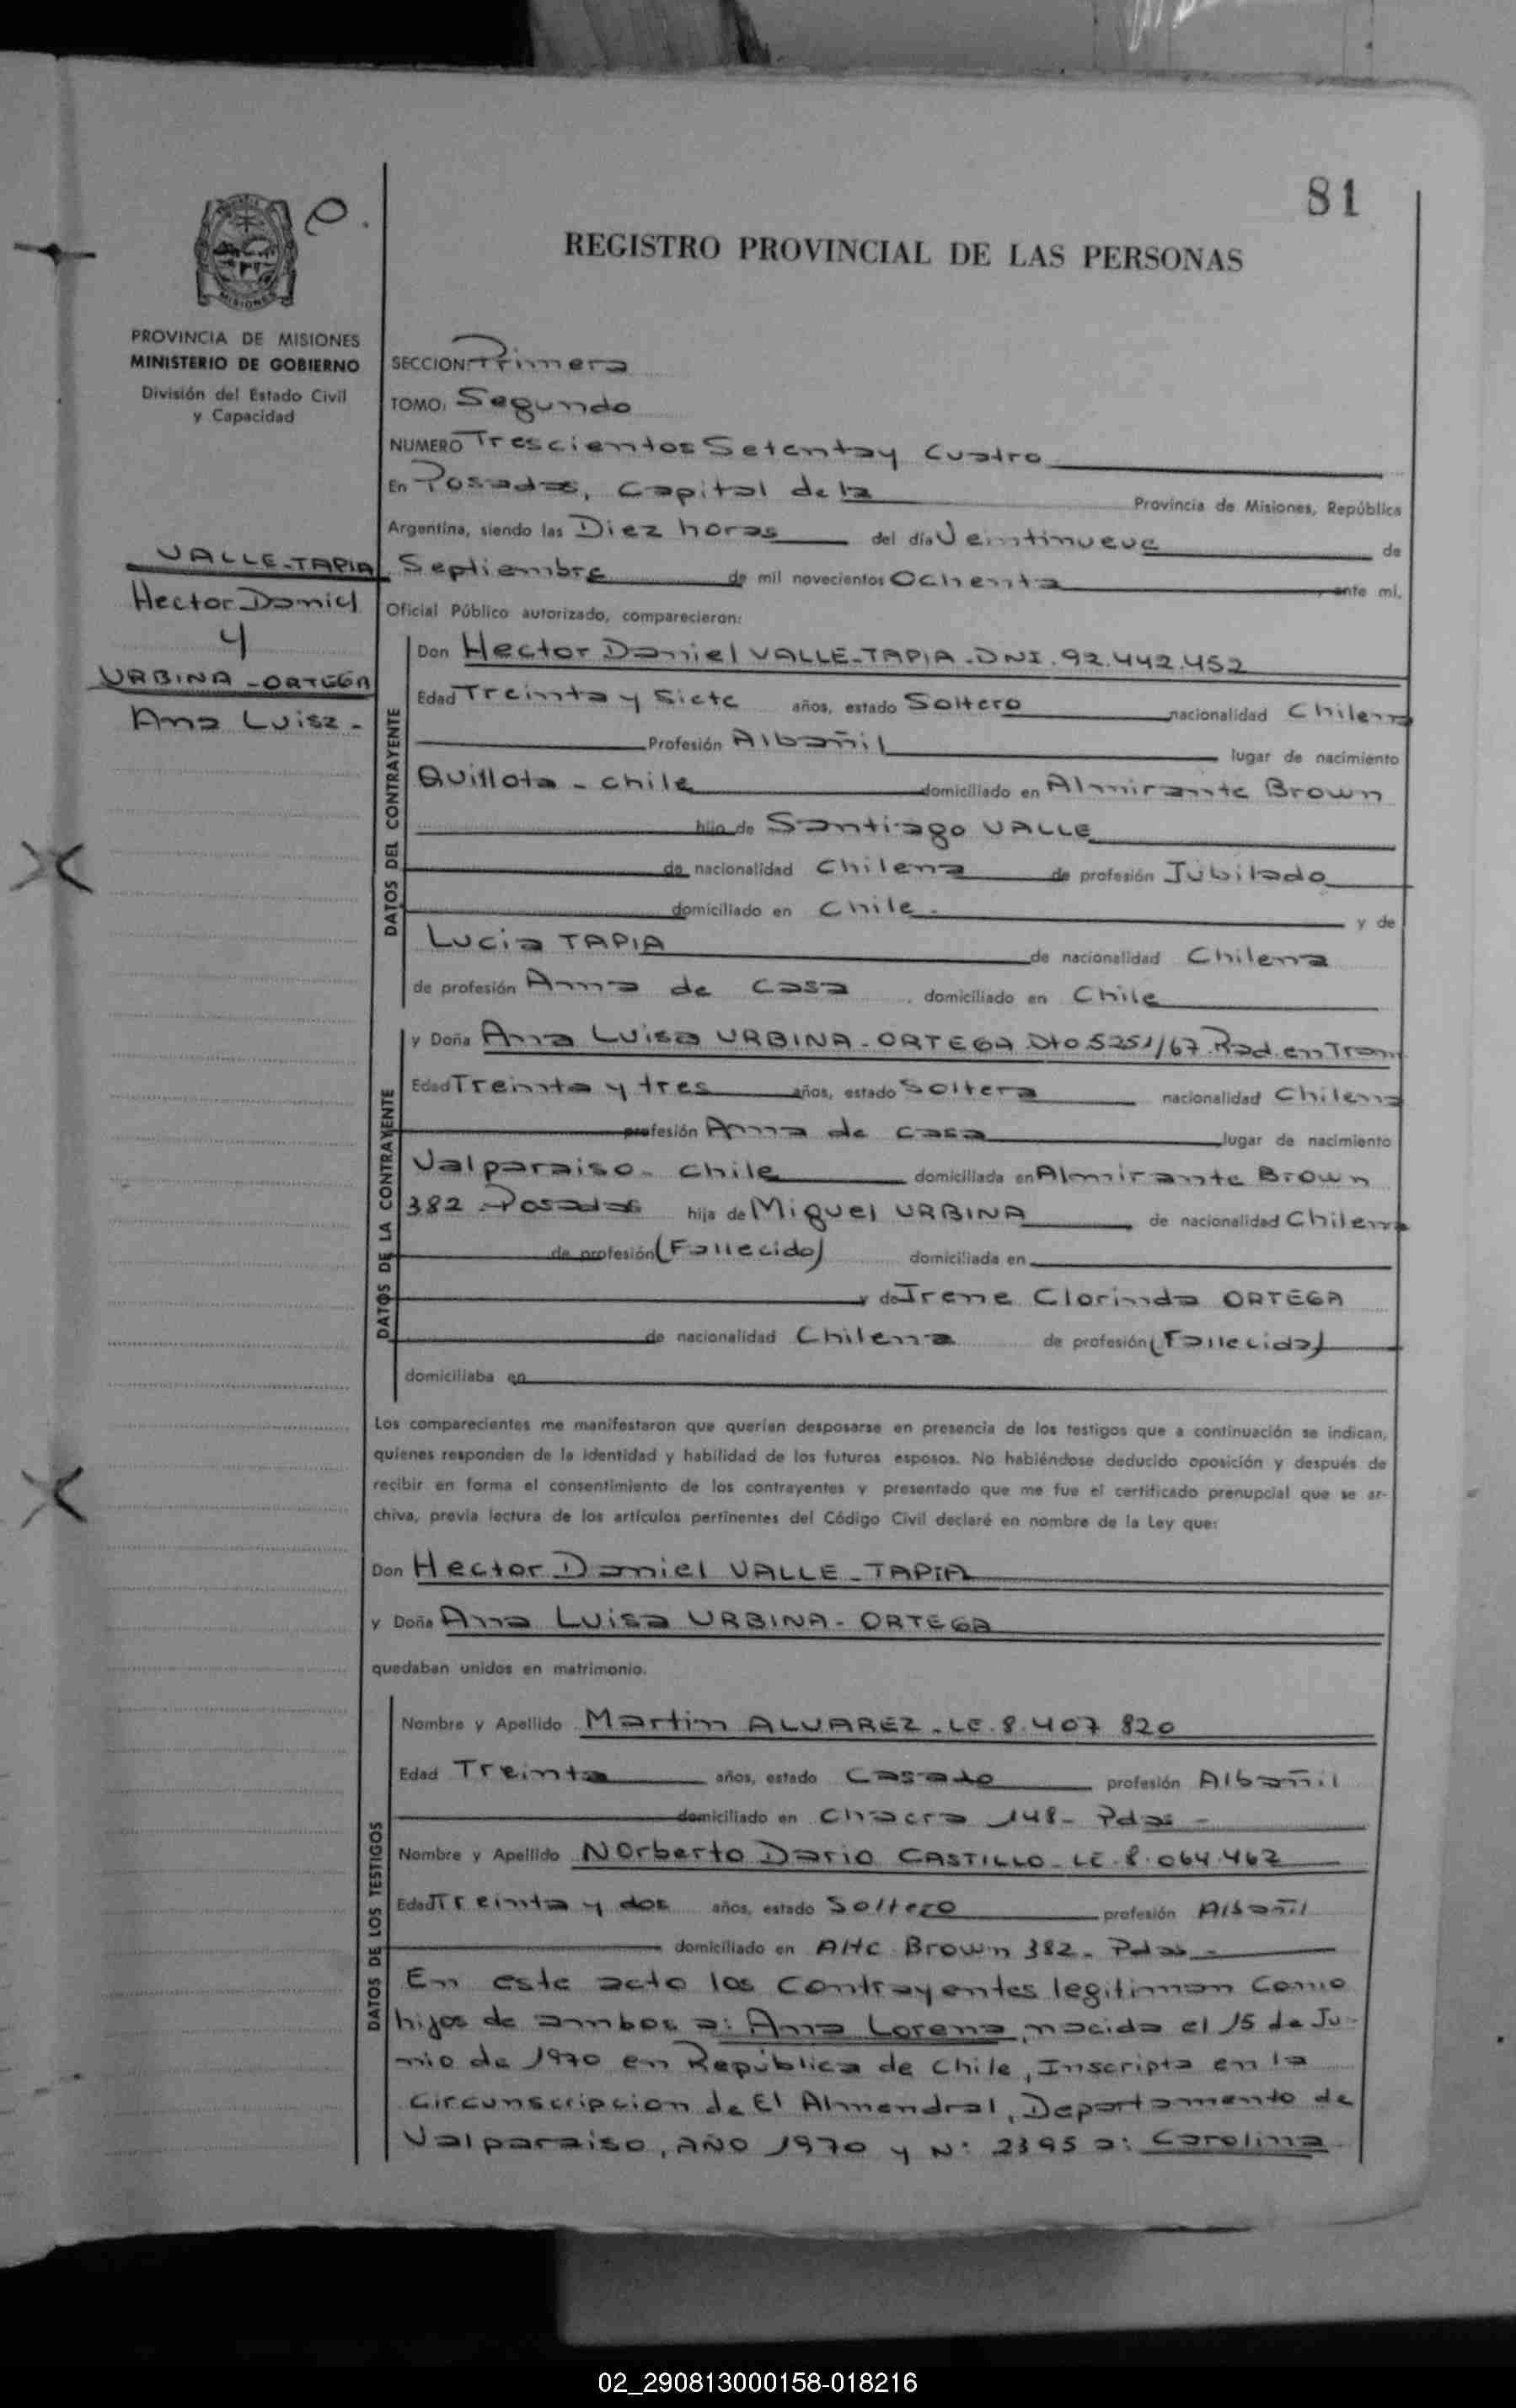 81
REGISTRO PROVINCIAL DE LAS PERSONAS
MISIONES
PROVINCIA DE MISIONES
MINISTERIO DE GOBIERNO
División del Estado Civil
y Capacidad
VALLE-TAPIA
Hector Daniel
y
URBINA-ORTEGA
Ana Luisa-
SECCION: Primera
TOMO: Segundo
NUMERO Trescientos Setenta y Cuatro
En Posadas, Capital de la Provincia de Misiones, República
Argentina, siendo las Diez horas del día Veintinueve de
Septiembre de mil novecientos Ochenta, ante mí,
Oficial Público autorizado, comparecieron:
DATOS DEL CONTRAYENTE
Don Hector Daniel VALLE-TAPIA-DNI.92.442.452
Edad Treinta y Siete años, estado Soltero nacionalidad Chilena
Profesión Albañil lugar de nacimiento
Quillota - Chile domiciliado en Almirante Brown
hijo de Santiago VALLE
de nacionalidad Chilena de profesión Jubilado
domiciliado en Chile- y de
Lucia TAPIA de nacionalidad Chilena
de profesión Ama de Casa, domiciliado en Chile
DATOS DE LA CONTRAYENTE
y Doña Ana Luisa URBINA-ORTEGA Dto 5251/67.Rad.en Tram
Edad Treinta y tres años, estado Soltera nacionalidad Chilena
profesión Ama de casa lugar de nacimiento
Valparaiso- Chile domiciliada en Almirante Brown
382-Posadas hija de Miguel URBINA de nacionalidad Chilena
de profesión (Fallecido) domiciliada en
y de Irene Clorinda ORTEGA
de nacionalidad Chilena de profesión (Fallecida)
domiciliaba en
Los comparecientes me manifestaron que querían desposarse en presencia de los testigos que a continuación se indican,
quienes responden de la identidad y habilidad de los futuros esposos. No habiéndose deducido oposición y después de
recibir en forma el consentimiento de los contrayentes y presentado que me fue el certificado prenupcial que se ar-
chiva, previa lectura de los artículos pertinentes del Código Civil declaré en nombre de la Ley que:
Don Hector Daniel VALLE-TAPIA
y Doña Ana Luisa URBINA-ORTEGA
quedaban unidos en matrimonio.
DATOS DE LOS TESTIGOS
Nombre y Apellido Martin ALVAREZ-LE.8.407 820
Edad Treinta años, estado Casado profesión Albañil
domiciliado en Chacra 148- Pdas-
Nombre y Apellido Norberto Dario CASTILLO-LE.8.064.462
Edad Treinta y dos años, estado Soltero profesión Albañil
domiciliado en Alte Brown 382- Pdas-
En este acto los contrayentes legitiman como
hijos de ambos a: Ana Lorena, nacida el 15 de Ju-
nio de 1970 en República de Chile, Inscripta en la
Circunscripcion de El Almendral, Departamento de
Valparaiso, AÑO 1970 y N: 2395 a: Carolina
02_290813000158-018216